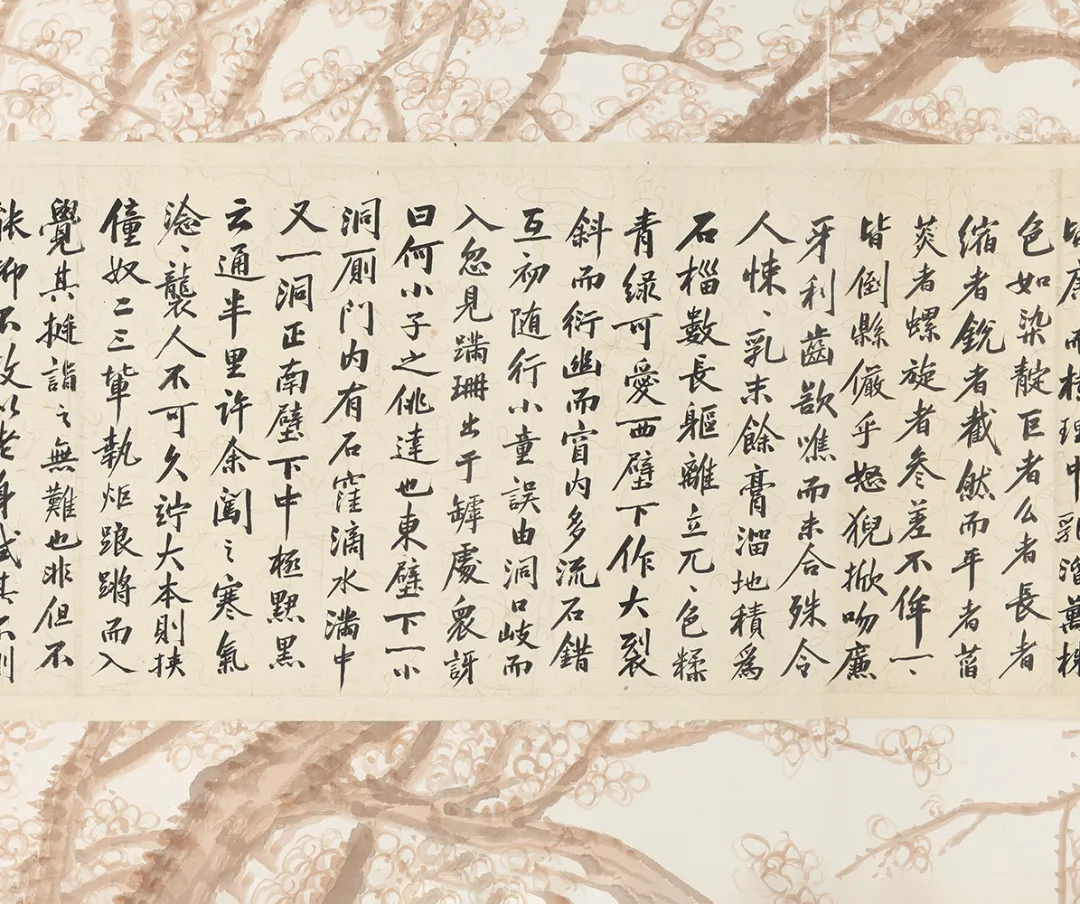 而植理中乳溜萬株
色如染靛巨者么者長者
縮者銳者截然而平者菡
者螺旋者參差不侔一、
皆倒縣儼乎怒猊掀吻廉
牙利齒欲噍而未合殊令
人悚、乳末餘膏溜地積為
石數長軀離立兀、色糅
青緑可愛西壁下作大裂
斜而衍幽而窅内多流石錯
互初随行小童誤由洞口歧而
入忽見蹣珊出于罅處衆訝
曰何小子之佻達也東壁下一小
洞厠門内有石窪滴水滿中
又一洞正南壁下中極黟黑
云通半里許余闖之寒氣
淰、襲人不可久竚大本則挾
僮奴二三輩執炬踉蹡而入
覺其詣之無難也非但不
不敢以老身試其不測